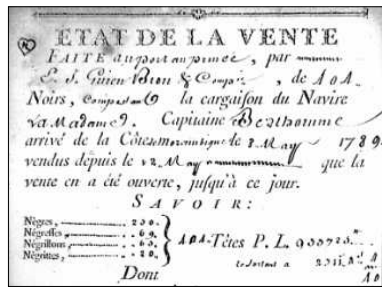 ETAT DE LA VENTE
FAITE au port au prince, par
& Compie, de 404.
Noirs, Composant la cargaison du Navire
La Madame. Capitaine Berthomme
arrivé de la Côte mozambique le 8 May 1789.
vendus depuis le 12. May que la
vente en a été ouverte, jusqu'à ce jour.
SAVOIR:
Négres, 250.
Négresses, 69.
Négrillons, 65.
Négrittes, 20.
404. Têtes P. L. 933725.
Dont